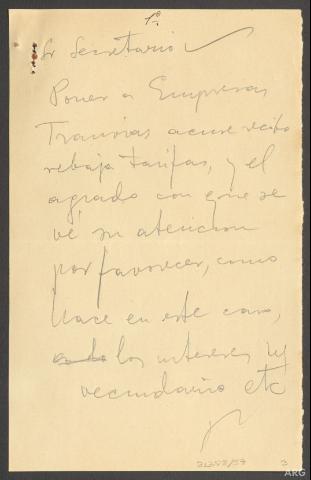 1º
Sr Secretario
Poner a Empresas
Tranvias acuse recibo
rebaja tarifas, y el
agrado con que se
ve su atencion
por favorecer, como
hace en este caso,
los intereses
vecindario etc
2
ARG